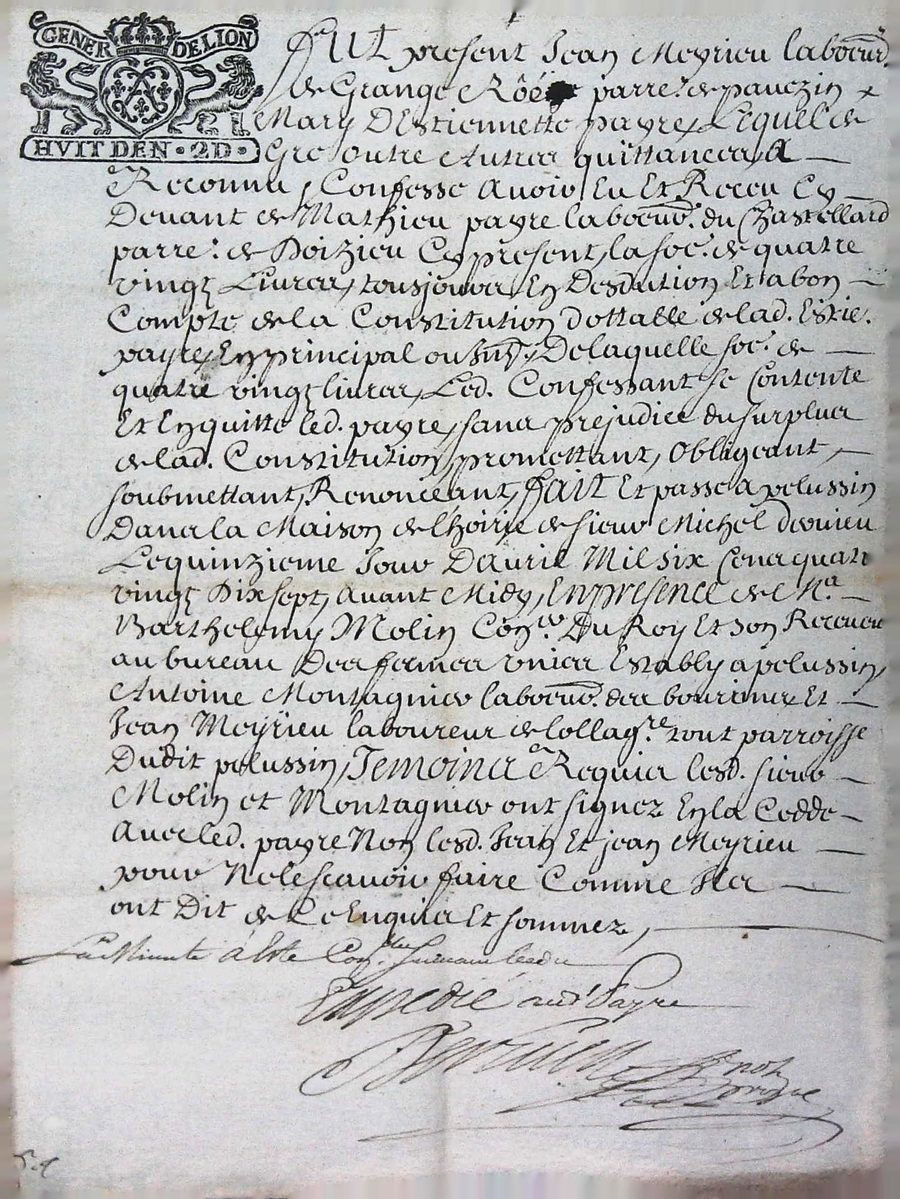 GENER DELION
HVIT DEN · 2D ·
Fut present Jean Meyrieu laboeur.
de Grange Roëe parre. de pauezin &
Mary D'Estiennette payre, Lequel de
Gre outre Autres quittances, A
Reconnu, Confesse Avoir Eu Et Receu Cy
Devant de Mathieu payre laboeur. du Chastellard
parre. de Doizieu Cy present, la soe. de quatre
vingt Livres, tousjours En Desdution Et a bon
Compte de la Constitution dottalle de lad. Estie.
payre, En principal ou De laquelle soe. de
quatre vingt livres, Led. Confessant se Contente
Et En quitte led. payre, sans prejudice du surplus
de lad. Constitution, promettant, Obligeant,
soubmettant, Renonceant, fait Et passe a pelussin
Dans la Maison de l'hoirie de sieur Michel
Le quinzieme Jour D'auril Mil six Cens quatre
vingt Dix sept, avant Midy, En presence de Me.
Barthelemy Molin Coner. Du Roy Et son Receveur
au bureau Des fermes vnies Estably a pelussin,
Antoine Montagnier laboeur. des bourines Et
Jean Meyrieu laboureur de tout parroisse
Dudit pelussin, Temoins Requis lesd. sieur
Molin et Montagnier ont signez En la Cedde
Avec led. payre Non lesd. Jean Et jean Meyrieu
pour Ne le scauoir faire Comme Ils
ont Dit de Ce Enquis Et sommez,
La Minutte a este Con.lée suivant l'edit
Expedié aud. Payre
not.
royal